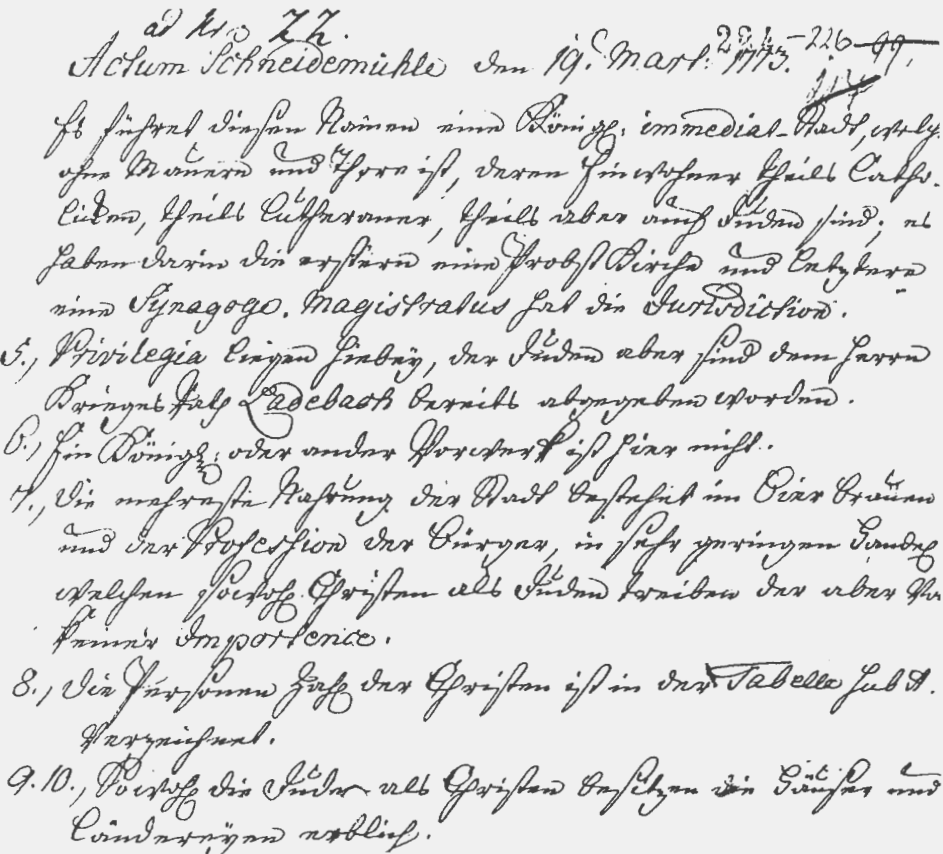 ad Nro 22.
Actum Schneidemühle den 19t. Mart: 1773.
Es führet diesen Namen eine Königl: immediat-Stadt, welche
ohne Mauern und Thore ist, deren Einwohner theils Catho-
licken, theils Lutheraner, theils aber auch Juden sind; es
haben darin die erstern eine Probst Kirche und letztere
eine Synagoge. Magistratus hat die Jurisdiction.
5., Privilegia liegen hiebey, der Juden aber sind dem Herrn
Krieges Rath Ladebach bereits abgegeben worden.
6., Ein Königl: oder ander Vorwerk ist hier nicht.
7., Die mehreste Nahrung der Stadt bestehet im Bier brauen
und der Profession der Bürger, in sehr geringen Handel
welchen sowohl Christen als Juden treiben der aber
keiner Importence.
8., Die Personen Zahl der Christen ist in der Tabelle sub A.
Verzeichnet.
9.10., Sowohl die Juden als Christen besitzen die Häuser und
Ländereyen erblich.